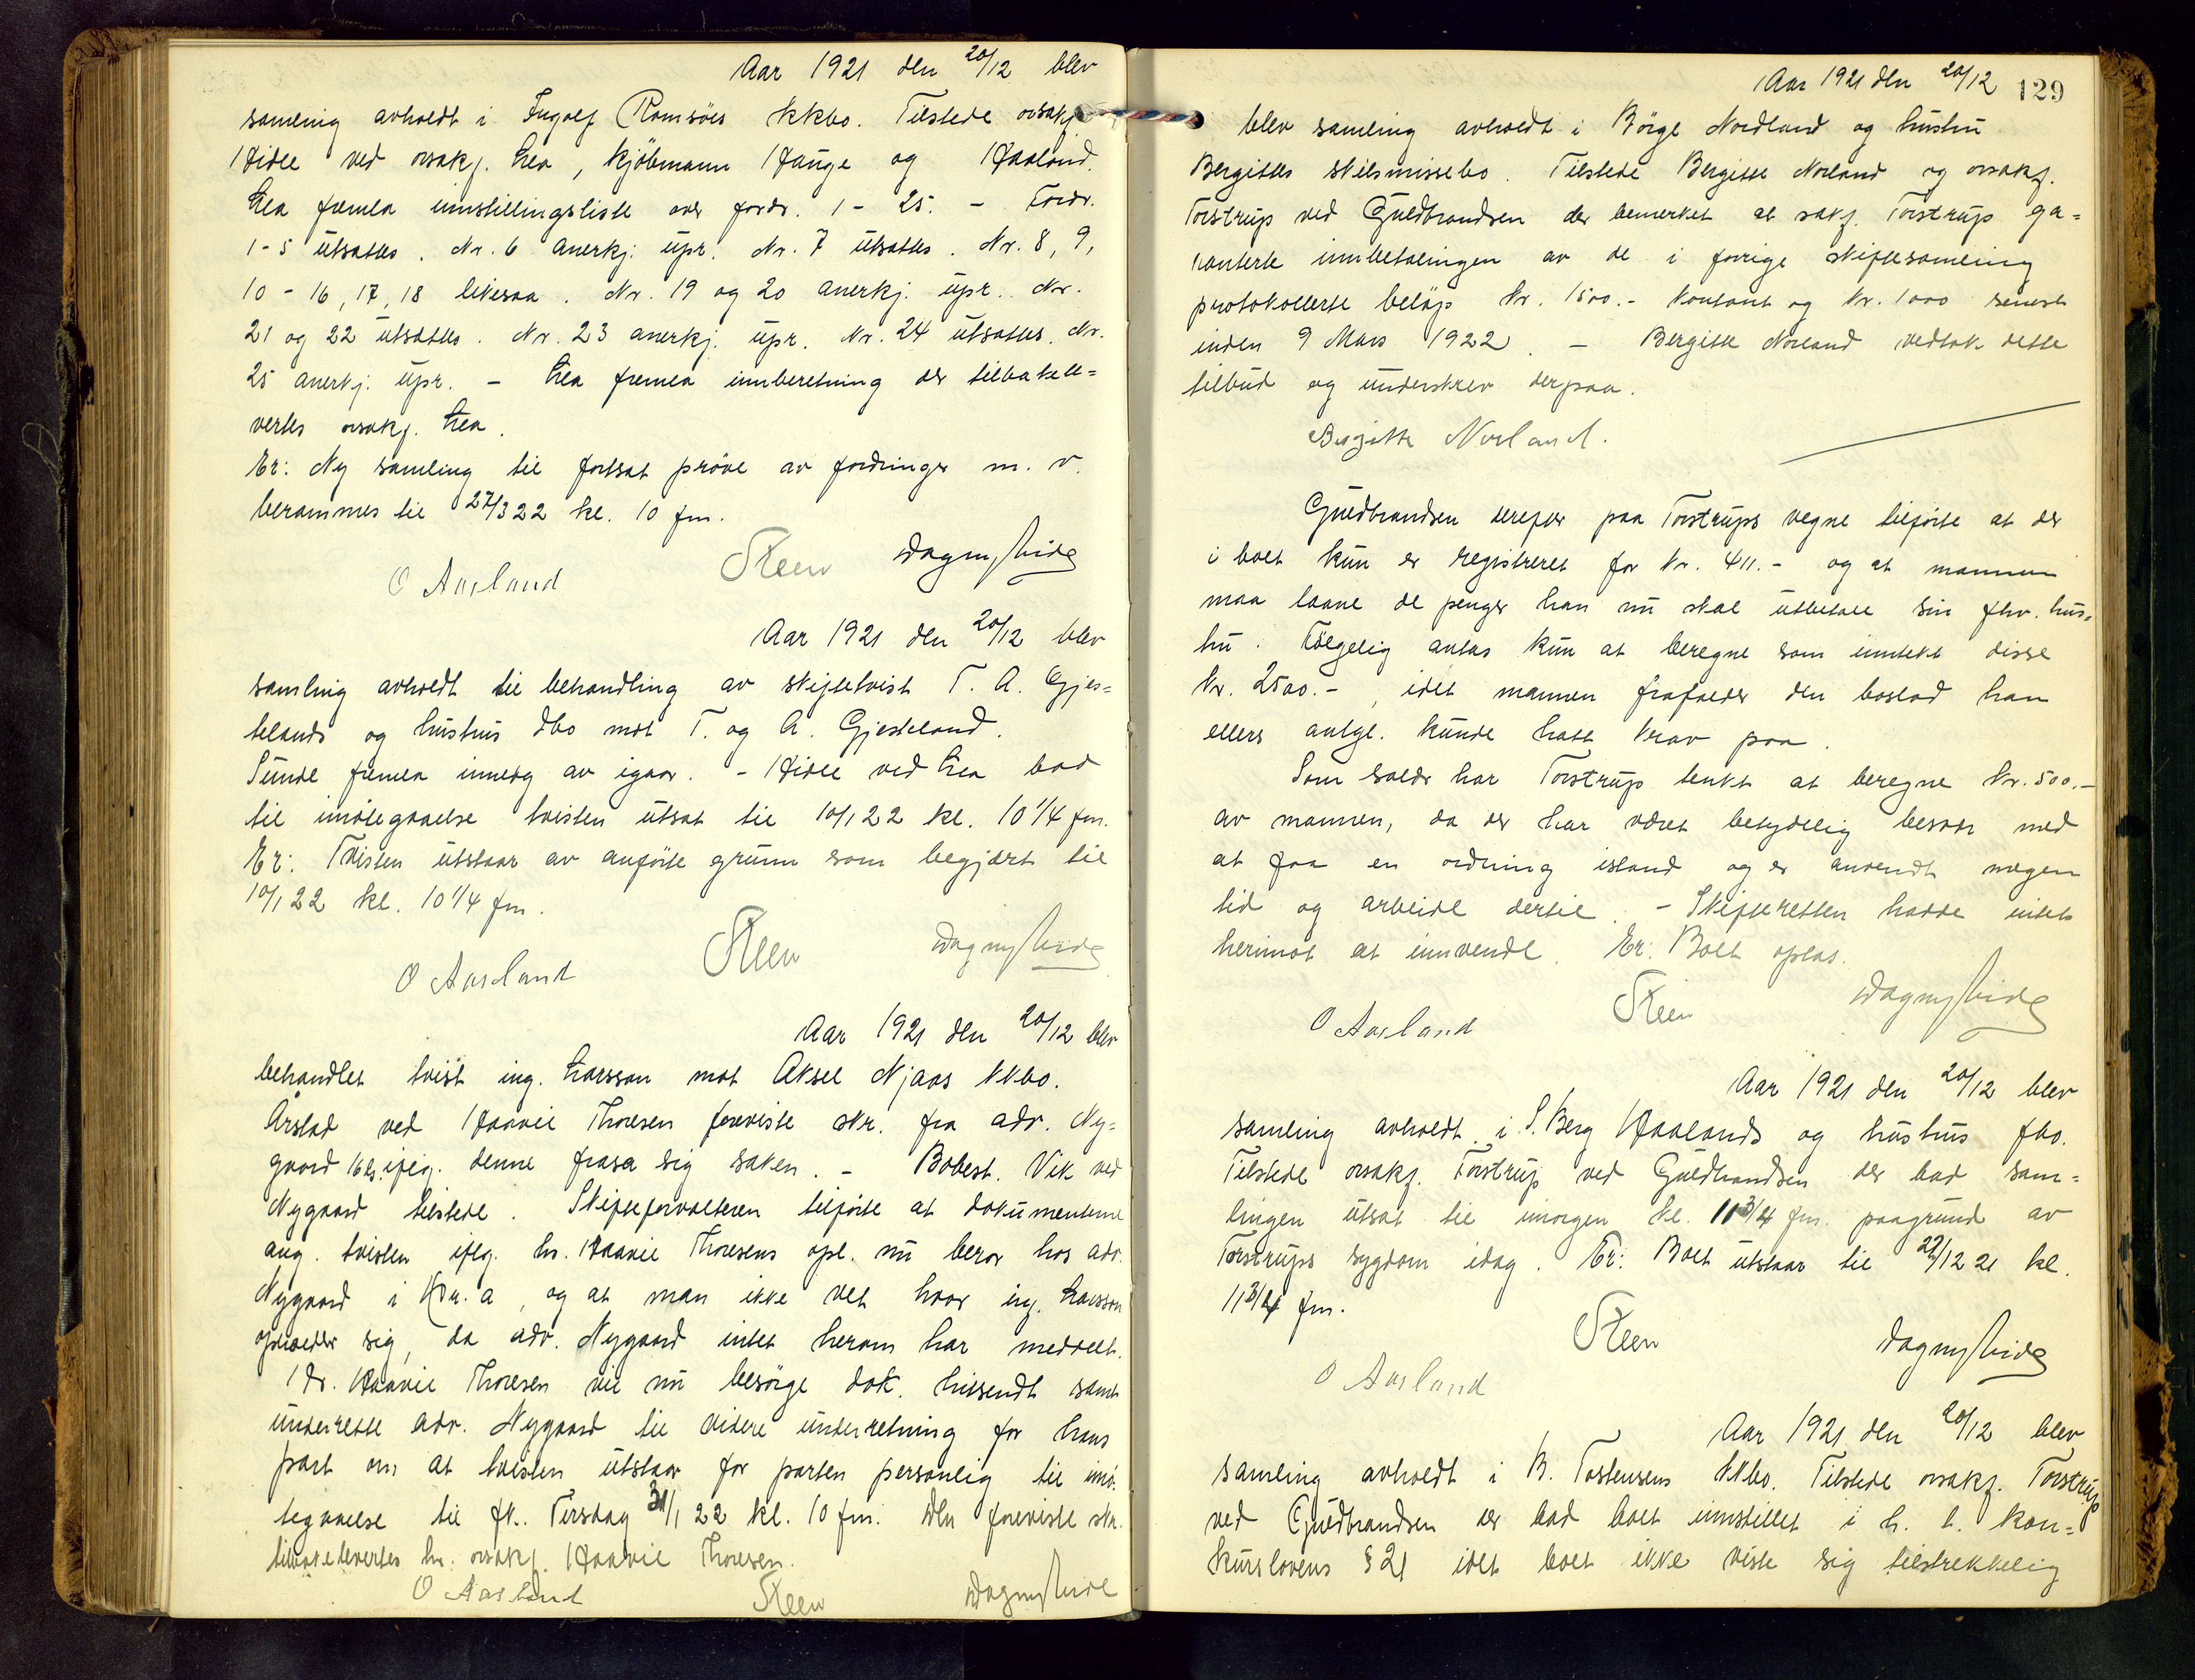 Aar 1921 den 20/12 blev
samling avholdt i Ingolf Romsöes kkbo. Tilstede osakf.
Hidle ved osakf. Lea, kjöbmann Hauge og Haaland.
Lea fremla innstillingsliste over fordr. 1 - 25. - Fordr.
1-5 utsattes. Nr. 6 anerkj. upr. Nr. 7 utsattes. Nr. 8, 9,
10 - 16, 17, 18 likesaa. Nr. 19 og 20 anerkj. upr. Nr.
21 og 22 utsattes. Nr. 23 anerkj. upr. Nr. 24 utsattes. Nr.
25 anerkj. upr. - Lea fremla innberetning der tilbakele=
vertes osakf. Lea.
Er: Ny samling til fortsat pröve av fordringer m. v.
berammes til 27/3 22 kl. 10 fm.
O Aarland Steen Dagny Hide
Aar 1921 den 20/12 blev
samling avholdt til behandling av skiftetvist T. A. Gjes=
telands og hustrus dbo mot T. og A. Gjesteland.
Sunde fremla innlæg av igaar. - Hidle ved Lea bad
til imötegaaelse tvisten utsat til 10/1 22 kl. 10 1/4 fm.
Er: Tvisten utstaar av anförte grunn som begjært til
10/1 22 kl. 10 1/4 fm.
O Aarland Steen Dagny Hide
Aar 1921 den 20/12 blev
behandlet tvist ing. Larsson mot Aksel Njaas kkbo.
Årstad ved Haavie Thoresen foreviste skr. fra adv. Ny=
gaard iflg. denne frasa sig saken. - Bobest. Vik ved
Nygaard tilstede. Skifteforvalteren tilförte at dokumenterne
ang. tvisten iflg. hr. Haavie Thoresens opl. nu beror hos adv.
Nygaard i Kr.a, og at man ikke vet hvor ing. Larsson
opholder sig, da adv. Nygaard intet herom har meddelt.
Hr. Haavie Thoresen vil nu besörge dok. hitsendt samt
underrette adv. Nygaard til videre underretning for hans
part om at tvisten utstaar for parten personlig til imö=
tegaaelse til fk. Tirsdag 31/1 22 kl. 10 fm. Den foreviste skr.
tilbakelevertes hr. osakf. Haavie Thoresen.
O Aarland Steen Dagny Hide
Aar 1921 den 20/12 129
blev samling avholdt i Börge Nordland og hustru
Bergittes skilsmissebo. Tilstede Bergitte Norland og osakf.
Torstrup ved Guldbrandsen der bemerket at sakf. Torstrup ga=
ranterte innbetalingen av de i forrige skiftesamling
protokollerte belöp kr. 1500.- kontant og kr. 1000 senest
inden 9 Mars 1922. - Bergitte Norland vedtok dette
tilbud og underskrev derpaa.
Birgitte Norland.
Guldbrandsen derefter paa Torstrups vegne tilförte at der
i boet kun er registreret for kr. 411.- og at mannen
maa laane de penger han nu skal utbetale sin fhv. hus=
tru. Fölgelig antas kun at beregne som inntekt disse
kr. 2500.-, idet mannen frafalder den boslod han
ellers antgl. kunde hatt krav paa.
Som salær har Torstrup tenkt at beregne kr. 500.-
av mannen, da der har været betydelig besvær med
at faa en ordning istand og er anvendt megen
tid og arbeide dertil. - Skifteretten hadde intet
herimot at innvende. Er: Boet optas.
O Aarland Steen Dagny Hide
Aar 1921 den 20/12 blev
samling avholdt i S. Berg Haalands og hustrus fbo.
Tilstede osakf. Torstrup ved Guldbrandsen der bad sam=
lingen utsat til imorgen kl. 11 3/4 fm. paagrund av
Torstrups sygdom idag. Er: Boet utstaar til 22/12 21 kl.
11 3/4 fm.
O Aarland Steen Dagny Hide
Aar 1921 den 20/12 blev
samling avholdt i B. Torstensens kkbo. Tilstede osakf. Torstrup
ved Guldbrandsen der bad boet innstillet i h. t. kon=
kurslovens § 21 idet boet ikke viste sig tilstrekkelig